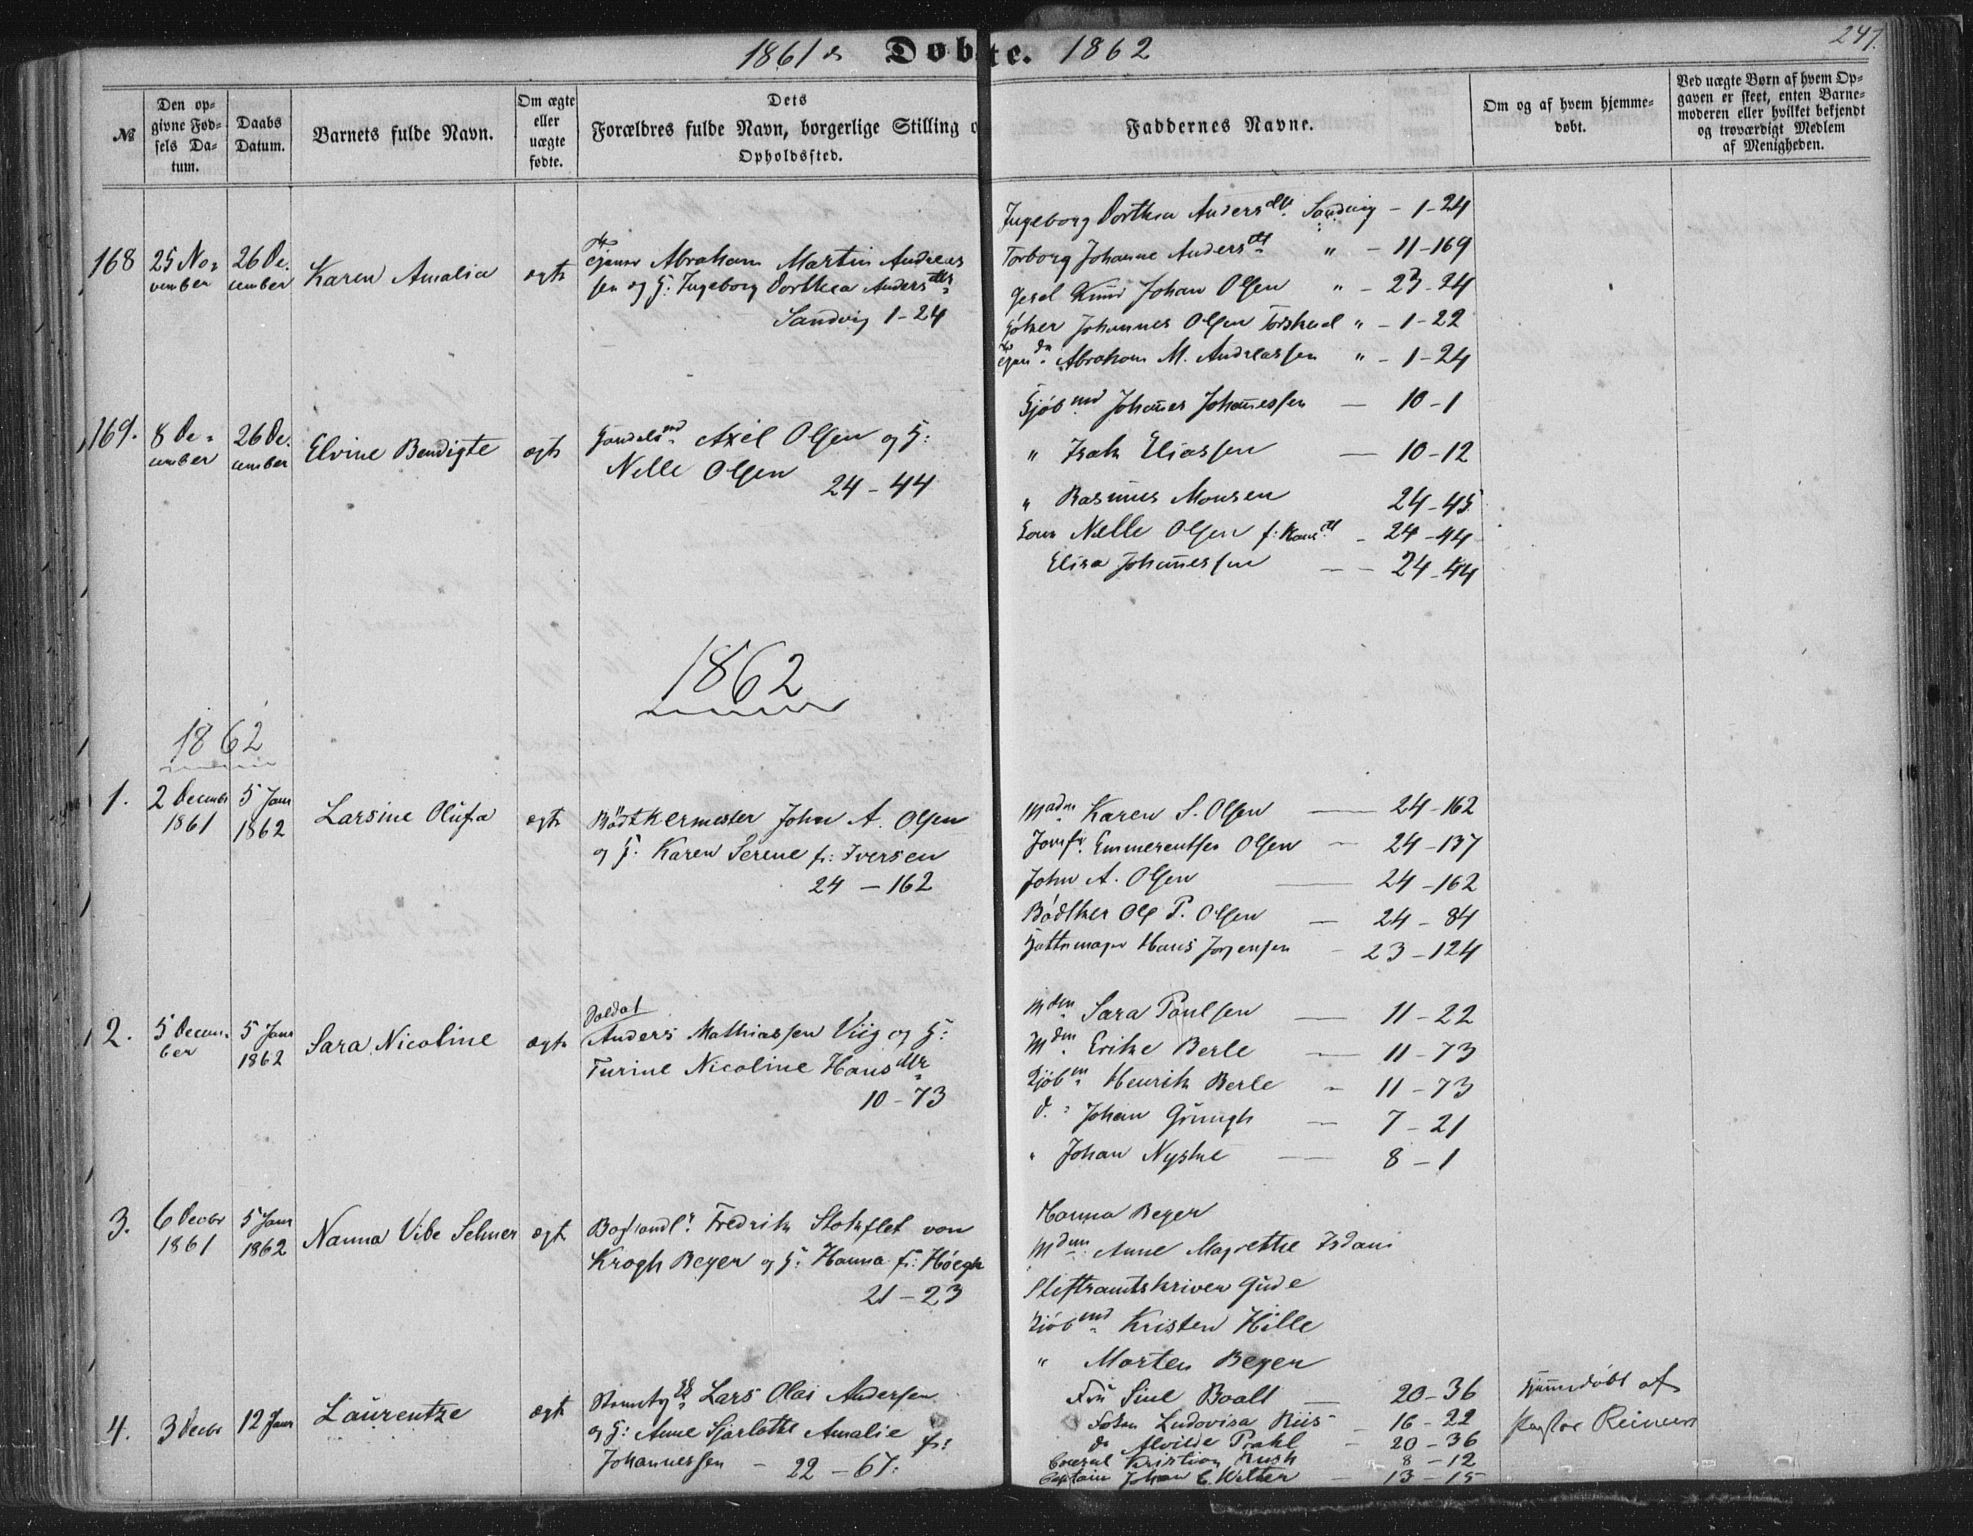 1861 & Døbte. 1862
247.
№
Den op-
givne Fød-
sels Da-
tum.
Daabs
Datum.
Barnets fulde Navn.
Om ægte
eller
uægte
fødte.
Dets
Forældres fulde Navn, borgerlige Stilling o
Opholdssted.
Faddernes Navne.
Om og af hvem hjemme-
døbt.
Ved uægte Børn af hvem Op-
gaven er skeet, enten Barne-
moderen eller hvilket bekjendt
og troværdigt Medlem
af Menigheden.
168 25 No- 26 De-
vember cember Karen Amalia ægte
Abraham Martin Andreas
sen og H: Ingeborg Dorthea Andersdtr
Sandvig 1-24
Ingeborg Dorthea Andersdtr Sandvig - 1-24
Torborg Johanne Andersdtr " - 11-169
Knud Johan Olsen " - 23-24
Johannes Olsen " - 1-22
Abraham M. Andreassen " - 1-24
169. 8 De- 26 De-
cember cember Elvine Bendigte ægte
Handelsmd Axel Olsen og H:
Nelle Olsen 24-44
Kjøbmd Johannes Johannessen - 10-1
" Isak Eliassen - 10-12
" Rasmus Monsen 24-45
Nelle Olsen f: Hansdtr - 24-44
Elisa Johannessen - - 24-44
1862
1862
1. 2 Decembr 5 Janr
1861 1862
Larsine Olufa ægte
Bødtkermester John A. Olsen
og H: Karen Serene f: Iversen
24 - 162
Madm Karen S. Olsen - 24-162
Jomfr. Emmerentse Olsen - 24-137
John A. Olsen - 24-162
Bødtker Ole P. Olsen - 24-84
Hattemager Hans Jørgensen - 23-124
2. 5 Decem- 5 Janr
ber 1862
Sara Nicoline ægte
Soldat
Anders Mathiassen Viig og H:
Turine Nicoline Hansdtr
10-73
Mdm Sara Paulsen - 11-22
Mdm Erike Berle - 11-73
Kjøbm Henrik Berle - 11-73
d. Johan Grungh - 7-21
" Johan Nyske - 8-1
3. 6 Decbr 5 Janr
1861 1862
Nanna Vibe Selmer ægte
Boghandlr Fredrik Stokflet von
Krogh Beyer og H: Hanna f: Høegh
21-23
Hanna Beyer
Mdm Anne Magrethe Isdani
Stiftsamtskriver Gude
Kjøbmd Kristen Hille
" Morten Beyer
4. 3 Decbr 12 Janr Laurentze ægte
Lars Olai Andersen
og H: Anne Sjarlotte Amalie f:
Johannessen - 22 - 67:
Fru Sine Boalt - 20-36
Frøken Ludovisa Riis - 16-22
do Alvilde Prahl - 20-36
Consul Kristian Rusk 8-12
Captain Johan C. Welter - 13-15
hjemmedøbt af
Pastor Reimers